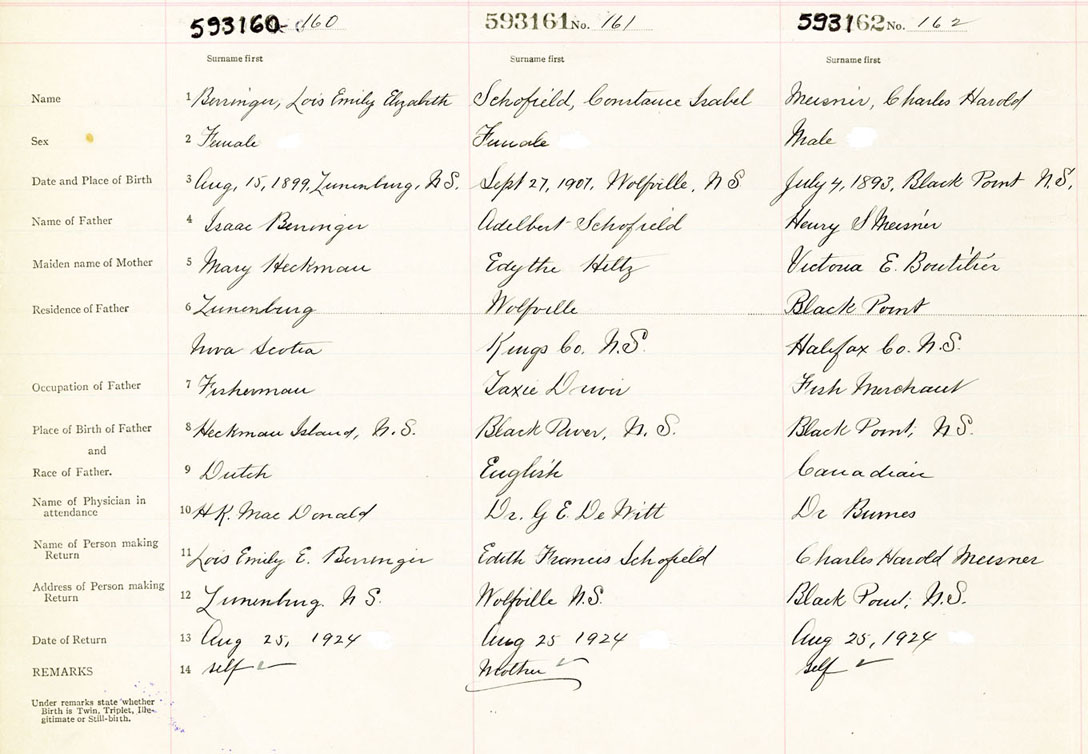 593160 160 593161 No. 161 593162 No. 162
Surname first Surname first Surname first
Name 1 Berringer, Lois Emily Elizabeth Schofield, Constance Isabel Meisner, Charles Harold
Sex 2 Female Female Male
Date and Place of Birth 3 Aug, 15, 1899, Lunenburg, N.S. Sept 27, 1907, Wolfville, N S July 4, 1893, Black Point N.S,
Name of Father 4 Isaac Berringer Adelbert Schofield Henry S Meisner
Maiden name of Mother 5 Mary Heckman Edythe Hiltz Victoria E. Boutilier
Residence of Father 6 Lunenburg Wolfville Black Point
Nova Scotia Kings Co. N.S. Halifax Co. N.S.
Occupation of Father 7 Fisherman Taxie Driver Fish Merchant
Place of Birth of Father 8 Heckman Island, N.S. Black River, N.S. Black Point, N.S.
and
Race of Father. 9 Dutch English Canadian
Name of Physician in attendance 10 H.K. Mac Donald Dr. G E. De Witt Dr
Name of Person making Return 11 Lois Emily E. Berringer Edith Francis Schofield Charles Harold Meisner
Address of Person making Return 12 Lunenburg. N S. Wolfville N.S. Black Point, N.S.
Date of Return 13 Aug 25, 1924 Aug 25 1924 Aug 25, 1924
REMARKS 14 self Mother self
Under remarks state whether
Birth is Twin, Triplet, Ille-
gitimate or Still-birth.